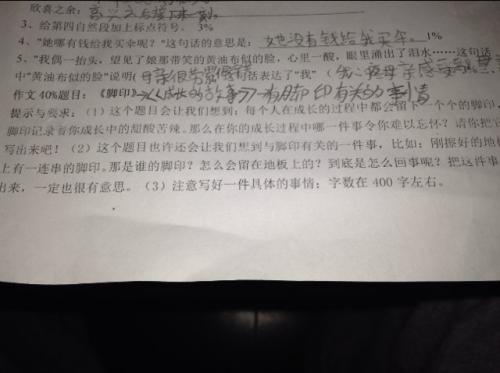 欣喜之余:
3、给第四自然段加上标点符号。3%
4、"她哪有钱给我买伞呢?"这句话的意思是:她没有钱给我买伞。1%
5、"我偶一抬头,望见了她那带笑的黄油布似的脸,心里一酸,眼里涌出了泪水……这句话
中"黄油布似的脸"说明(母亲很劳累 句话表达了"我"(我 母亲感
作文 40%题目:《脚印》 成长的故事 有脚印有关的事情
提示与要求:(1)这个题目会让我们想到,每个人在成长的过程中都会留下一个个的脚印,
脚印记录着你成长中的甜酸苦辣。那么在你的成长过程中哪一件事令你难以忘怀?请你把它
写出来吧!(2)这个题目也许还会让我们想到与脚印有关的一件事,比如:刚擦好的地板
上有一连串的脚印。那是谁的脚印?怎么会留在地板上的?到底是怎么回事呢?把这件事
出来,一定也很有意思。(3)注意写好一件具体的事情;字数在 400 字左右。